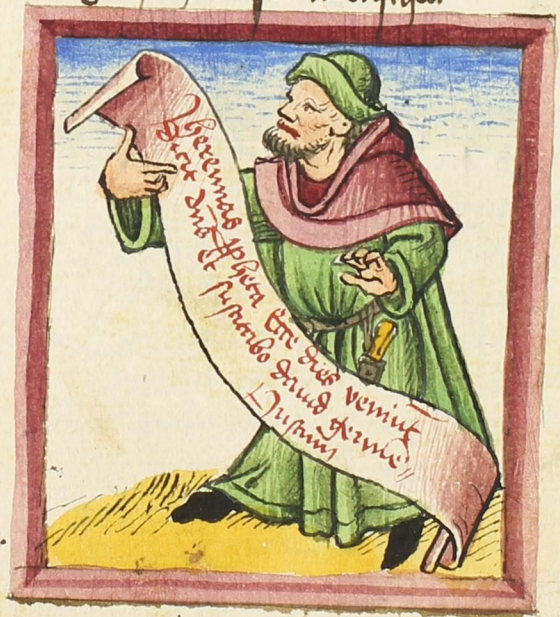 Jheremias ppheta Ecce dies veniūt
dicit dn̄s et suscitabo dauid germē
Justum